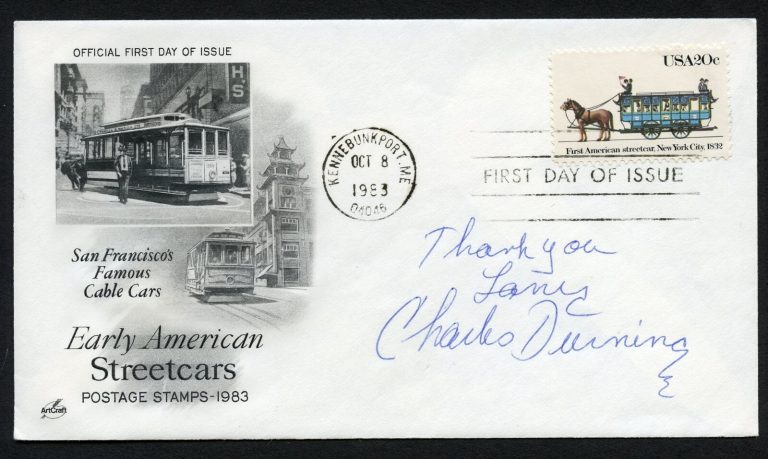 OFFICIAL FIRST DAY OF ISSUE
H'S
San Francisco's
Famous
Cable Cars
Early American
Streetcars
POSTAGE STAMPS-1983
ArtCraft
KENNEBUNKPORT, ME
OCT 8
1983
04046
USA20c
First American streetcar, New York City, 1832
FIRST DAY OF ISSUE
Thank you
Lany
Charles Durning